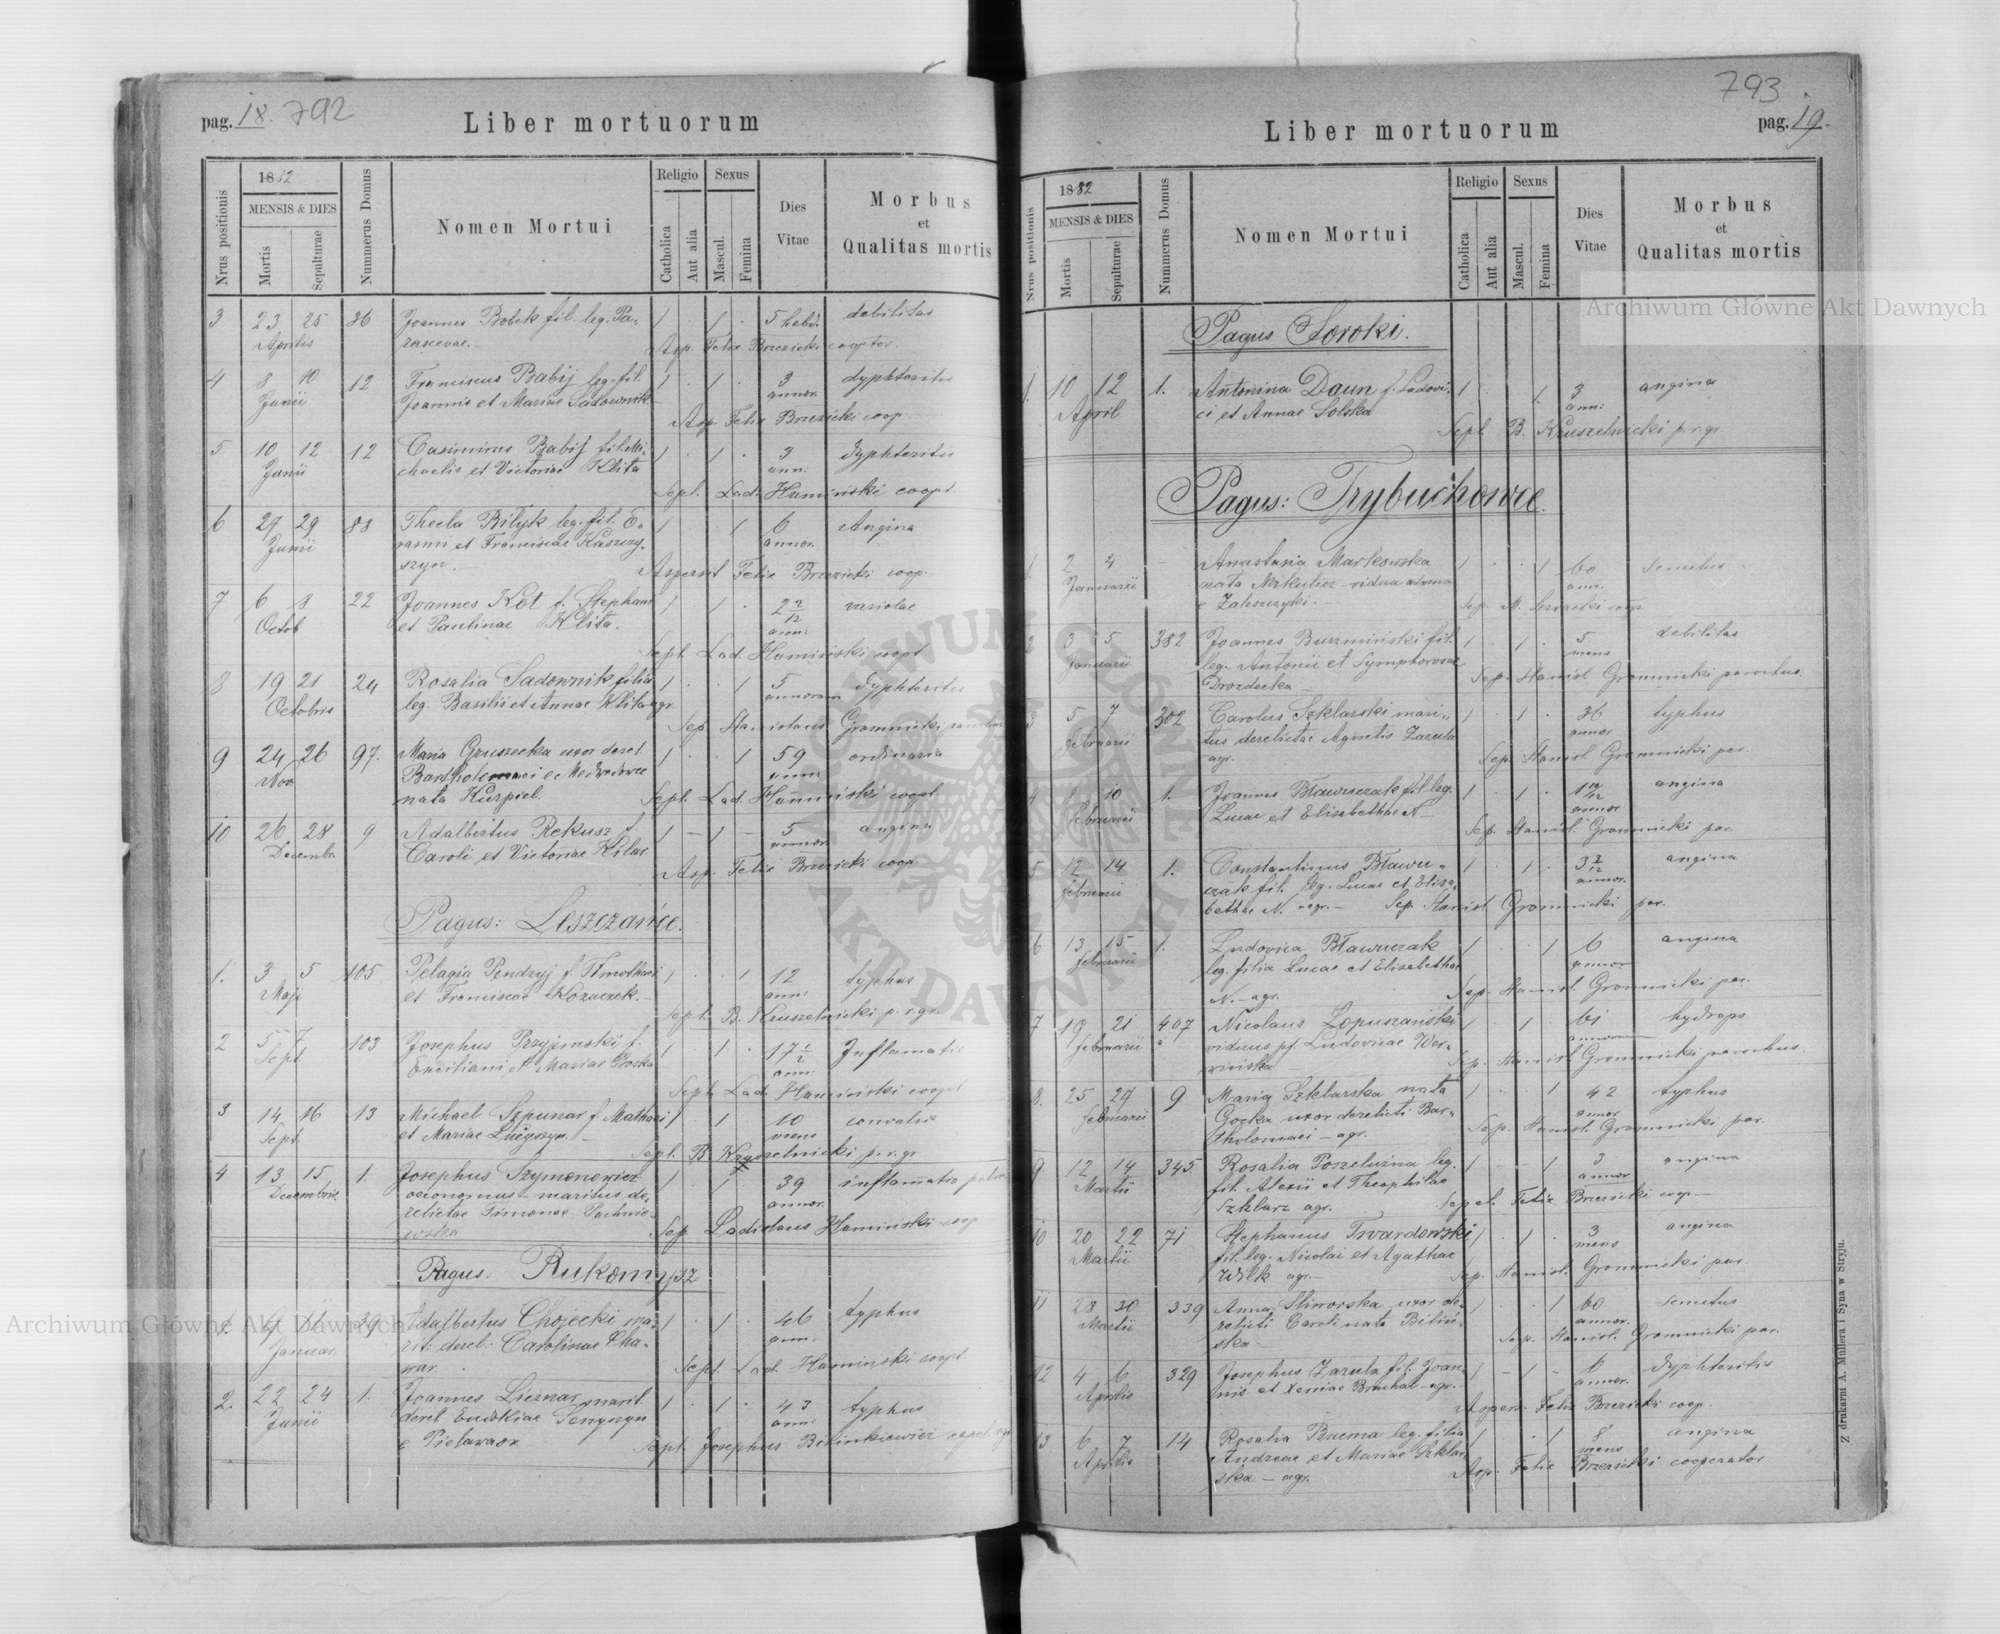 pag. 18. 792
Liber mortuorum
Nrus positionis
1882
MENSIS & DIES
Mortis
Sepulturae
Nummerus Domus
Nomen Mortui
Religio
Catholica
Aut alia
Sexus
Mascul.
Femina
Dies Vitae
Morbus
et
Qualitas mortis
3 23 25 36 Joannes Bobek fil. leg. Pa- 1 . 1 . 5 hebd. debilitas
Aprilis Asp. Felix Brzezicki cooptor.
4 8 10 12 Franciscus Babij leg. fil. 1 . 1 . 3 dyphteritis
Junii Joannis et Mariae Sadownik annor.
Asp. Felix Brzezicki coop.
5 10 12 12 Casimirus Babij fil. Mi- 1 . 1 . 3 dyphteritis
Junii chaelis et Victoriae Klita ann:
Sept. Lad. Humiński coopt.
6 27 29 88 Thecla Bilyk leg. fil. E- 1 . . 1 6 Angina
Junii rasmi et Franciscae Kaszczy- annor.
szyn.
Aspersit Felix Brzezicki coop
7 6 8 22 Joannes Kot f. Stephani 1 . 1 . 2 2/12 variolae
Octob et Paulinae Klita. ann:
Sept. Lad. Humiński coopt
8 19 21 24 Rosalia Sadownik filia 1 . . 1 5 dyphteritis
Octobris leg. Basilii et Annae Klita agr. annorum
Sep. Stanislaus Gromnicki
9 24 26 97. Maria Gruszecka uxor derel. 1 . . 1 59 ordinaria
Nov. Bartholomaei e Medwedowce
nata Kurpiel.
Sept. Lad. Humiński coopt
10 26 28 9 Adalbertus Rekusz f. 1 – 1 – 5 angina
Decembr. Caroli et Victoriae Kilar annor.
Asp. Felix Brzezicki coop
Pagus: Leszczańce.
1. 3 5 105 Pelagia Pendzyj f. Timothaei 1 . . 1 12 typhus
Maji et Franciscae Kozaczek. ann:
Sept. B. Kruszelnicki p. r. gr.
2 5 7 103 Josephus Przyjemski f. 1 . 1 . 17 1/2 Inflamatio
Sept. Emiliani et Mariae ann:
Sept. Lad. Humiński coopt
3 14 16 13 Michael Szpunar f. Mathaei 1 . 1 . 10 convulsio
Sept. et Mariae mens
Sept. B. Kruszelnicki p. r. gr
4 13 15 1. Josephus Szymonowicz 1 . 1 . 39 inflamatio
Decembris oeconomus maritus de- annor.
relictae Simonae Pachnie-
wska
Sep. Ladislaus Humiński coop
Pagus: Rukomysz
1. 9 11 39 Adalbertus Chojecki ma- 1 . 1 . 46 typhus
Januar. rit: derel: Carolinae Cha- ann:
war.
Sept. Lad. Humiński coopt
2. 22 24 1. Joannes Licznar marit. 1 . 1 . 43 typhus
Junii derel. Eudokiae ann:
Sept. Josephus
pag. 19. 793
Liber mortuorum
Nrus positionis
1882
MENSIS & DIES
Mortis
Sepulturae
Nummerus Domus
Nomen Mortui
Religio
Catholica
Aut alia
Sexus
Mascul.
Femina
Dies Vitae
Morbus
et
Qualitas mortis
Pagus Soroki.
1. 10 12 1. Antonina Daun f. Ludovi- 1 . . 1 3 angina
April ci et Annae Solska ann:
Sept. B. Kruszelnicki p. r. gr.
Pagus: Trybuchowce.
1. 2 4 – Anastasia Markowska 1 . . 1 60 senectus
Januarii nata Mikulicz vidua advena ann.
e Zaleszczyki.
2 3 5 382 Joannes Buzmiński fil. 1 . 1 . 5 debilitas
Januarii leg. Antonii et Symphorosae mens
Drozdecka
Sep. Stanisl. Gromnicki parochus.
3 5 7 302 Carolus Szklarski mari- 1 . 1 . 36 typhus
Februarii tus derelictae Agnetis Zazula annor
agr.
Sep. Stanisl. Gromnicki par.
4 10 1. Joannes Bławuczak fil. leg. 1 . 1 . 1 10/12 angina
Februarii Lucae et Elisabethae N annor
Sep. Stanisl. Gromnicki par.
5 12 14 1. Constantinus Bławu- 1 . 1 . 3 2/12 angina
Februarii czak fil. leg. Lucae et Elisa- annor.
bethae N. agr. Sep. Stanisl. Gromnicki par.
6 13 15 1. Ludovica Bławuczak 1 . . 1 6 angina
Februarii leg. filia Lucae et Elisabethae annor
N. – agr.
Sep. Stanisl. Gromnicki par.
7 19 21 407 Nicolaus Łopuszański 1 . 1 . 61 hydrops
Februarii viduus pf. Ludovicae Wer- annorum
wińska
Sep. Stanisl Gromnicki parochus.
8. 25 27 9 Maria Szklarska nata 1 . . 1 42 typhus
Februarii Gocka uxor derelicti Bar- annor
tholomaei – agr.
Sep. Stanisl. Gromnicki par.
9 12 14 345. Rosalia Poszeluzna leg. 1 – – 1 3 angina
Martii fil. Alexii et Theophilae annor
Szklarz agr.
Sepel. Felix Brzezicki coop
10 20 22 71 Stephanus Twardowski 1 . 1 . 3 angina
Martii fil. leg. Nicolai et Agathae mens
Wilk agr.
Sep. Stanisl. Gromnicki par.
11 28 30 339 Anna Sliworska uxor de- 1 . . 1 60 senectus
Martii relicti Caroli nata Biliń- annor.
ska –
Sep. Stanisl. Gromnicki par.
12 4 6 329 Josephus Zazula fil. Joan- 1 – 1 – 6 dyphteritis
Aprilis nis et Xeniae Bruchal – agr. annor.
Aspers. Felix Brzezicki coop.
13 6 7 14 Rosalia Buczma leg. filia 1 . . 1 8 angina
Aprilis Andreae et Mariae Szklar- mens
ska – agr.
Asp. Felix Brzezicki cooperator
Z drukarni A. Mullera i Syna w Stryju.
Archiwum Główne Akt Dawnych
Archiwum Główne Akt Dawnych
ARCHIWUM GŁÓWNE AKT DAWNYCH